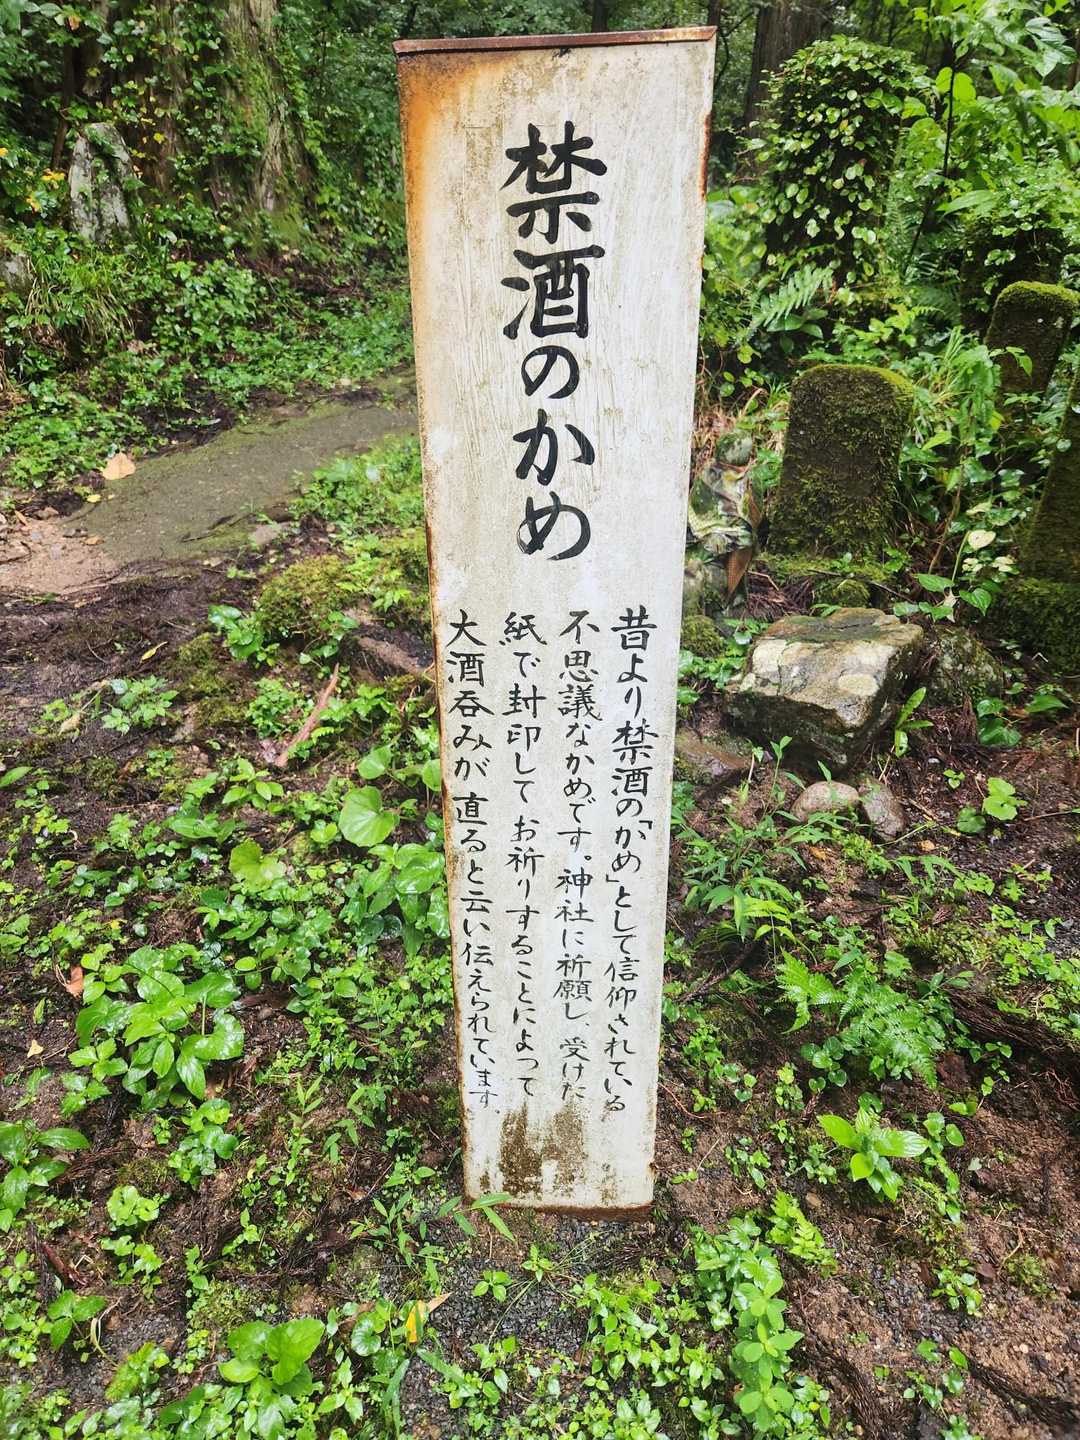 禁酒のかめ
昔より禁酒の「かめ」として信仰されている
不思議なかめです。神社に祈願し、受けた
紙で封印してお祈りすることによって
大酒呑みが直ると云い伝えられています。